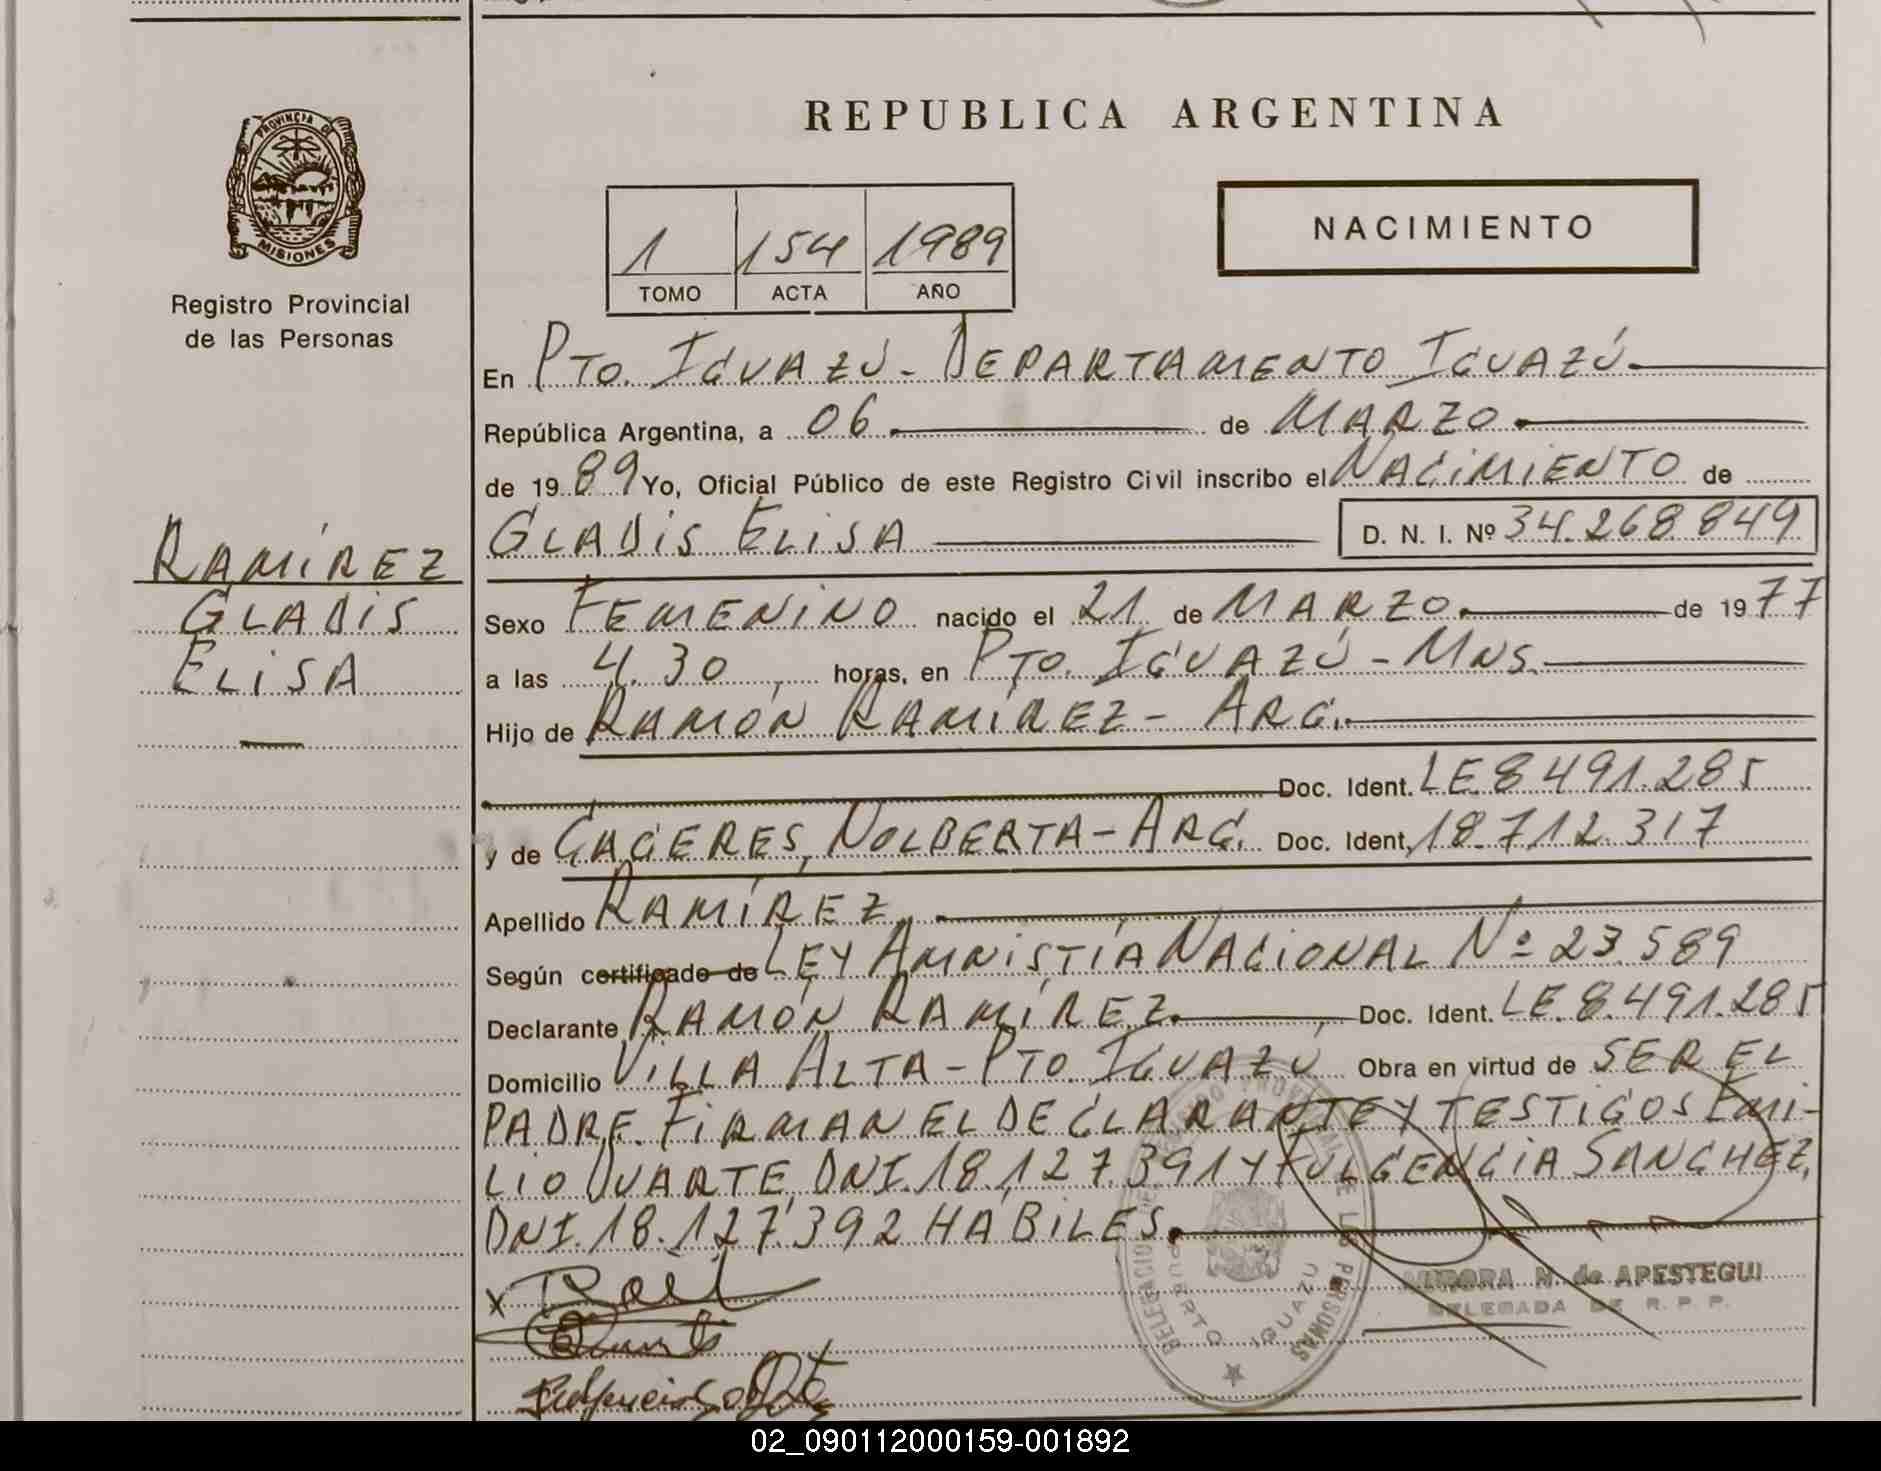 REPUBLICA ARGENTINA
PROVINCIA DE
MISIONES
Registro Provincial
de las Personas
NACIMIENTO
1 154 1989
TOMO ACTA AÑO
En PTO. IGUAZÚ - DEPARTAMENTO IGUAZÚ
República Argentina, a 06 de MARZO
de 1989 Yo, Oficial Público de este Registro Civil inscribo el NACIMIENTO de
GLADIS ELISA D. N. I. Nº 34.268.849
RAMÍREZ
GLADIS
ELISA
Sexo FEMENINO nacido el 21 de MARZO de 1977
a las 4.30 horas, en PTO. IGUAZÚ - MNS.
Hijo de RAMÓN RAMÍREZ - ARG.
Doc. Ident. LE 8491.285
y de CACERES, NOLBERTA - ARG. Doc. Ident. 18.712.317
Apellido RAMÍREZ
Según certificado de LEY AMNISTÍA NACIONAL Nº 23.589
Declarante RAMÓN RAMÍREZ Doc. Ident. LE.8.491.285
Domicilio VILLA ALTA - PTO. IGUAZÚ Obra en virtud de SER EL
PADRE. FIRMAN EL DECLARANTE Y TESTIGOS EMI-
LIO DUARTE, DNI. 18.127.391 Y FULGENCIA SANCHEZ,
DNI. 18.127.392 HÁBILES.
x
AURORA N. de APESTEGUI
DELEGADA DE R. P. P.
PUERTO IGUAZU
02_090112000159-001892